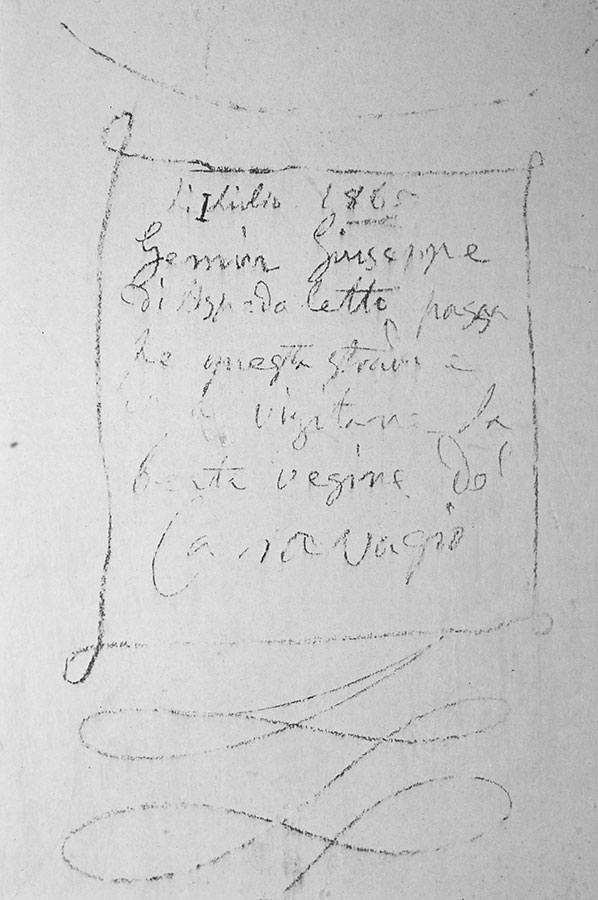 li I luio 1865
Gemin Giuseppe
di Aspedaletto passa
he questa strada e
vizitare la
beata vegine de
Caravagio